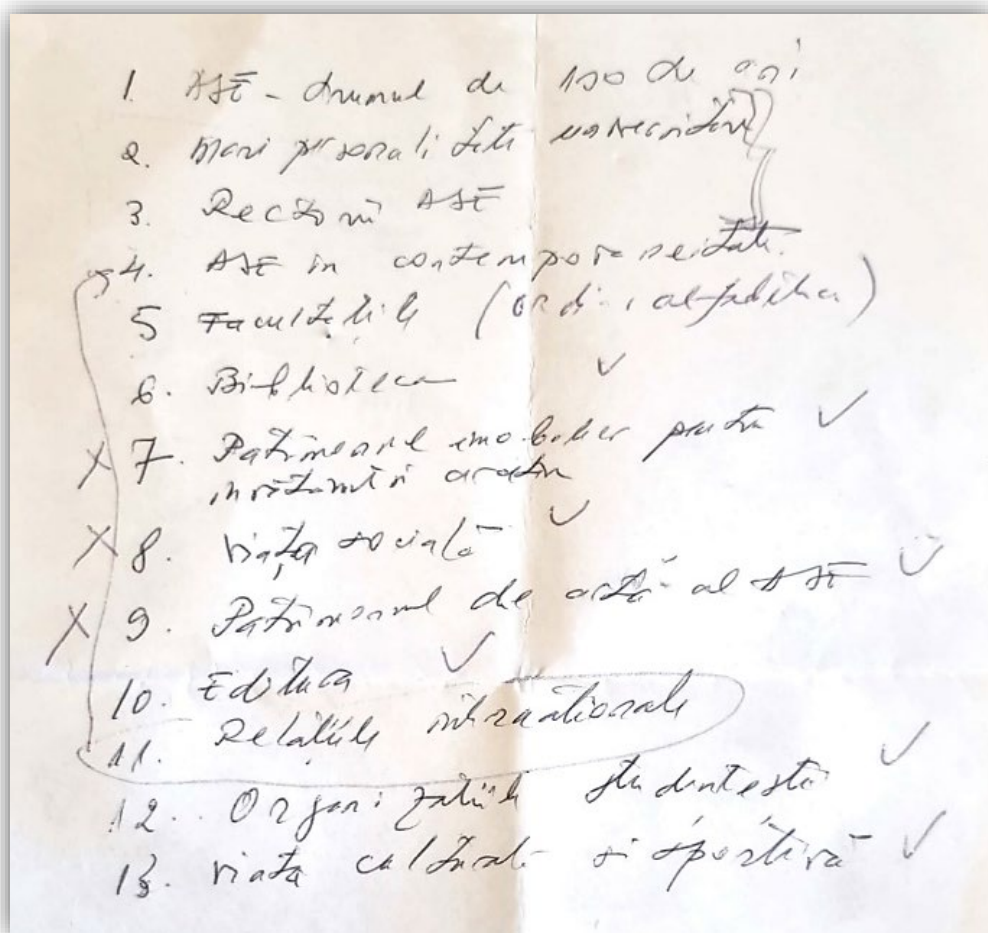 1. ASE - drumul de 100 de ani
2. Mari personalități universitare
3. Rectorii ASE
4. ASE în contemporaneitate.
5 Facultățile (ordine alfabetica)
6. Biblioteca ✓
X 7. Patrimoniul imobiliar pentru ✓
învățământ
X 8. Viața socială ✓
X 9. Patrimoniul de artă al ASE ✓
10. Editura ✓
11. Relațiile internaționale
12. Organizațiile studentești ✓
13. Viața culturală și sportivă ✓